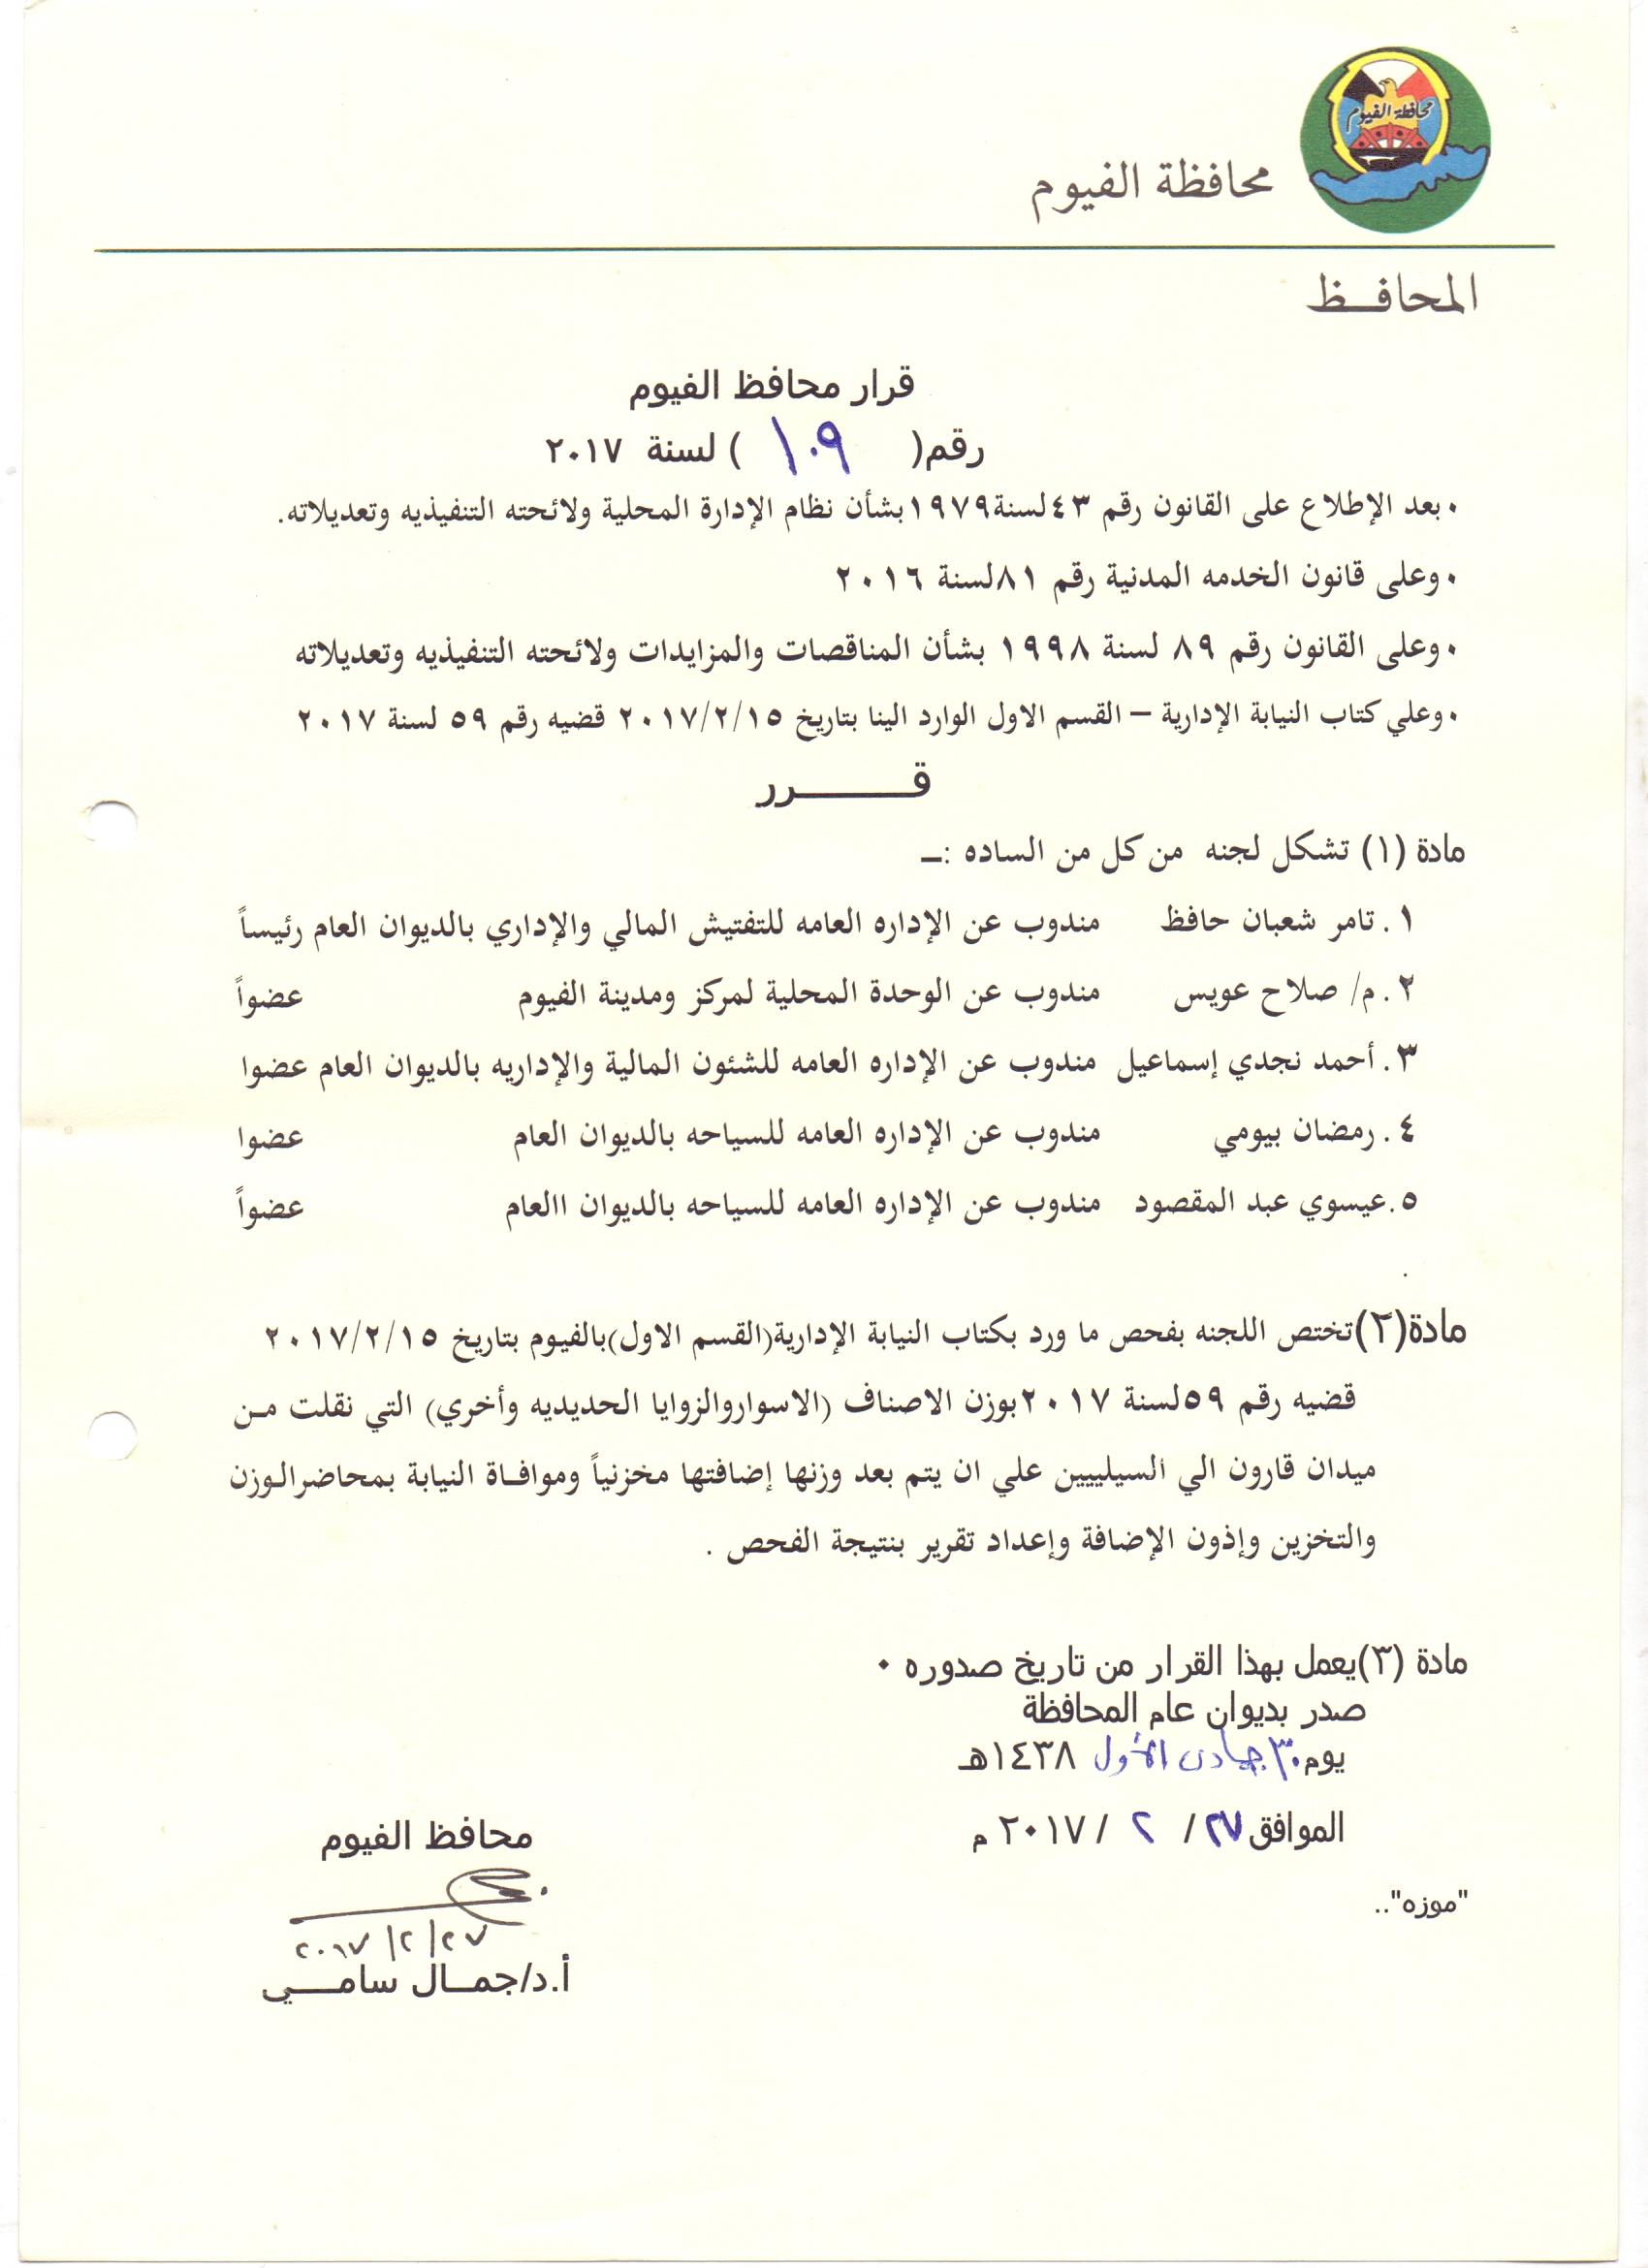 محافظة الفيوم
محافظة الفيوم
المحافـــظ
قرار محافظ الفيوم
رقم( ١٠٩ ) لسنة ٢٠١٧
٠ بعد الإطلاع على القانون رقم ٤٣لسنة١٩٧٩بشأن نظام الإدارة المحلية ولائحته التنفيذيه وتعديلاته.
٠ وعلى قانون الخدمه المدنية رقم ٨١لسنة ٢٠١٦
٠ وعلى القانون رقم ٨٩ لسنة ١٩٩٨ بشأن المناقصات والمزايدات ولائحته التنفيذيه وتعديلاته
٠ وعلي كتاب النيابة الإدارية – القسم الاول الوارد الينا بتاريخ ٢٠١٧/٢/١٥ قضيه رقم ٥٩ لسنة ٢٠١٧
قــــــــرر
مادة (١) تشكل لجنه من كل من الساده :ــ
١. تامر شعبان حافظ مندوب عن الإداره العامه للتفتيش المالي والإداري بالديوان العام رئيساً
٢. م/ صلاح عويس مندوب عن الوحدة المحلية لمركز ومدينة الفيوم عضواً
٣. أحمد نجدي إسماعيل مندوب عن الإداره العامه للشئون المالية والإداريه بالديوان العام عضوا
٤. رمضان بيومي مندوب عن الإداره العامه للسياحه بالديوان العام عضوا
٥.عيسوي عبد المقصود مندوب عن الإداره العامه للسياحه بالديوان االعام عضواً
.
مادة(٢)تختص اللجنه بفحص ما ورد بكتاب النيابة الإدارية(القسم الاول)بالفيوم بتاريخ ٢٠١٧/٢/١٥
قضيه رقم ٥٩لسنة ٢٠١٧بوزن الاصناف (الاسواروالزوايا الحديديه وأخري) التي نقلت مـن
ميدان قارون الي السيلييين علي ان يتم بعد وزنها إضافتها مخزنياً وموافـاة النيابة بمحاضرالـوزن
والتخزين وإذون الإضافة وإعداد تقرير بنتيجة الفحص .
مادة (٣)يعمل بهذا القرار من تاريخ صدوره ٠
صدر بديوان عام المحافظة
يوم ٣٠ جمادى الأول ١٤٣٨هـ
الموافق ٢٧/ ٢ / ٢٠١٧ م
محافظ الفيوم
"موزه"..
٢٠١٧/٢/٢٧
أ.د/جمــال سامـــــي